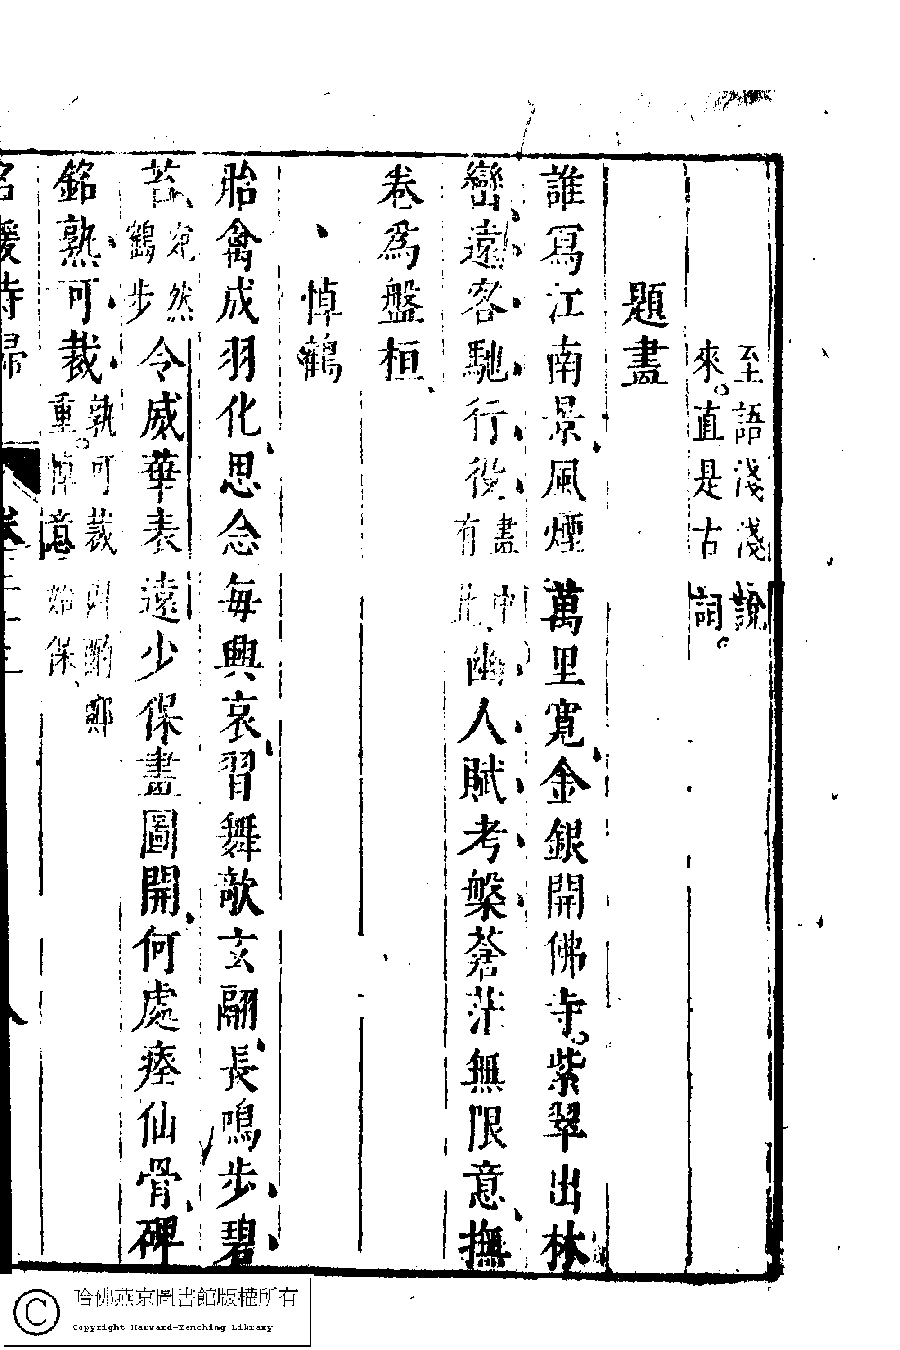 至語淺淺說
來。直是古詞。
題畫
誰寫江南景、風煙萬里寬、金銀開佛寺。紫翠出林
巒、遠客馳行役、畫中有此、幽人賦考槃、蒼茫無限意、撫
卷為盤桓、
悼鶴
胎禽成羽化、思念每興哀、習舞敧玄翮、長鳴步碧
苔、宛然鶴步令威華表遠少保畫圖開、何處瘞仙骨、碑
銘熟可裁孰可裁重。悼意
名媛詩歸
卷二十三
八
哈佛燕京圖書館版權所有
Copyright Harvard-Yenching Library